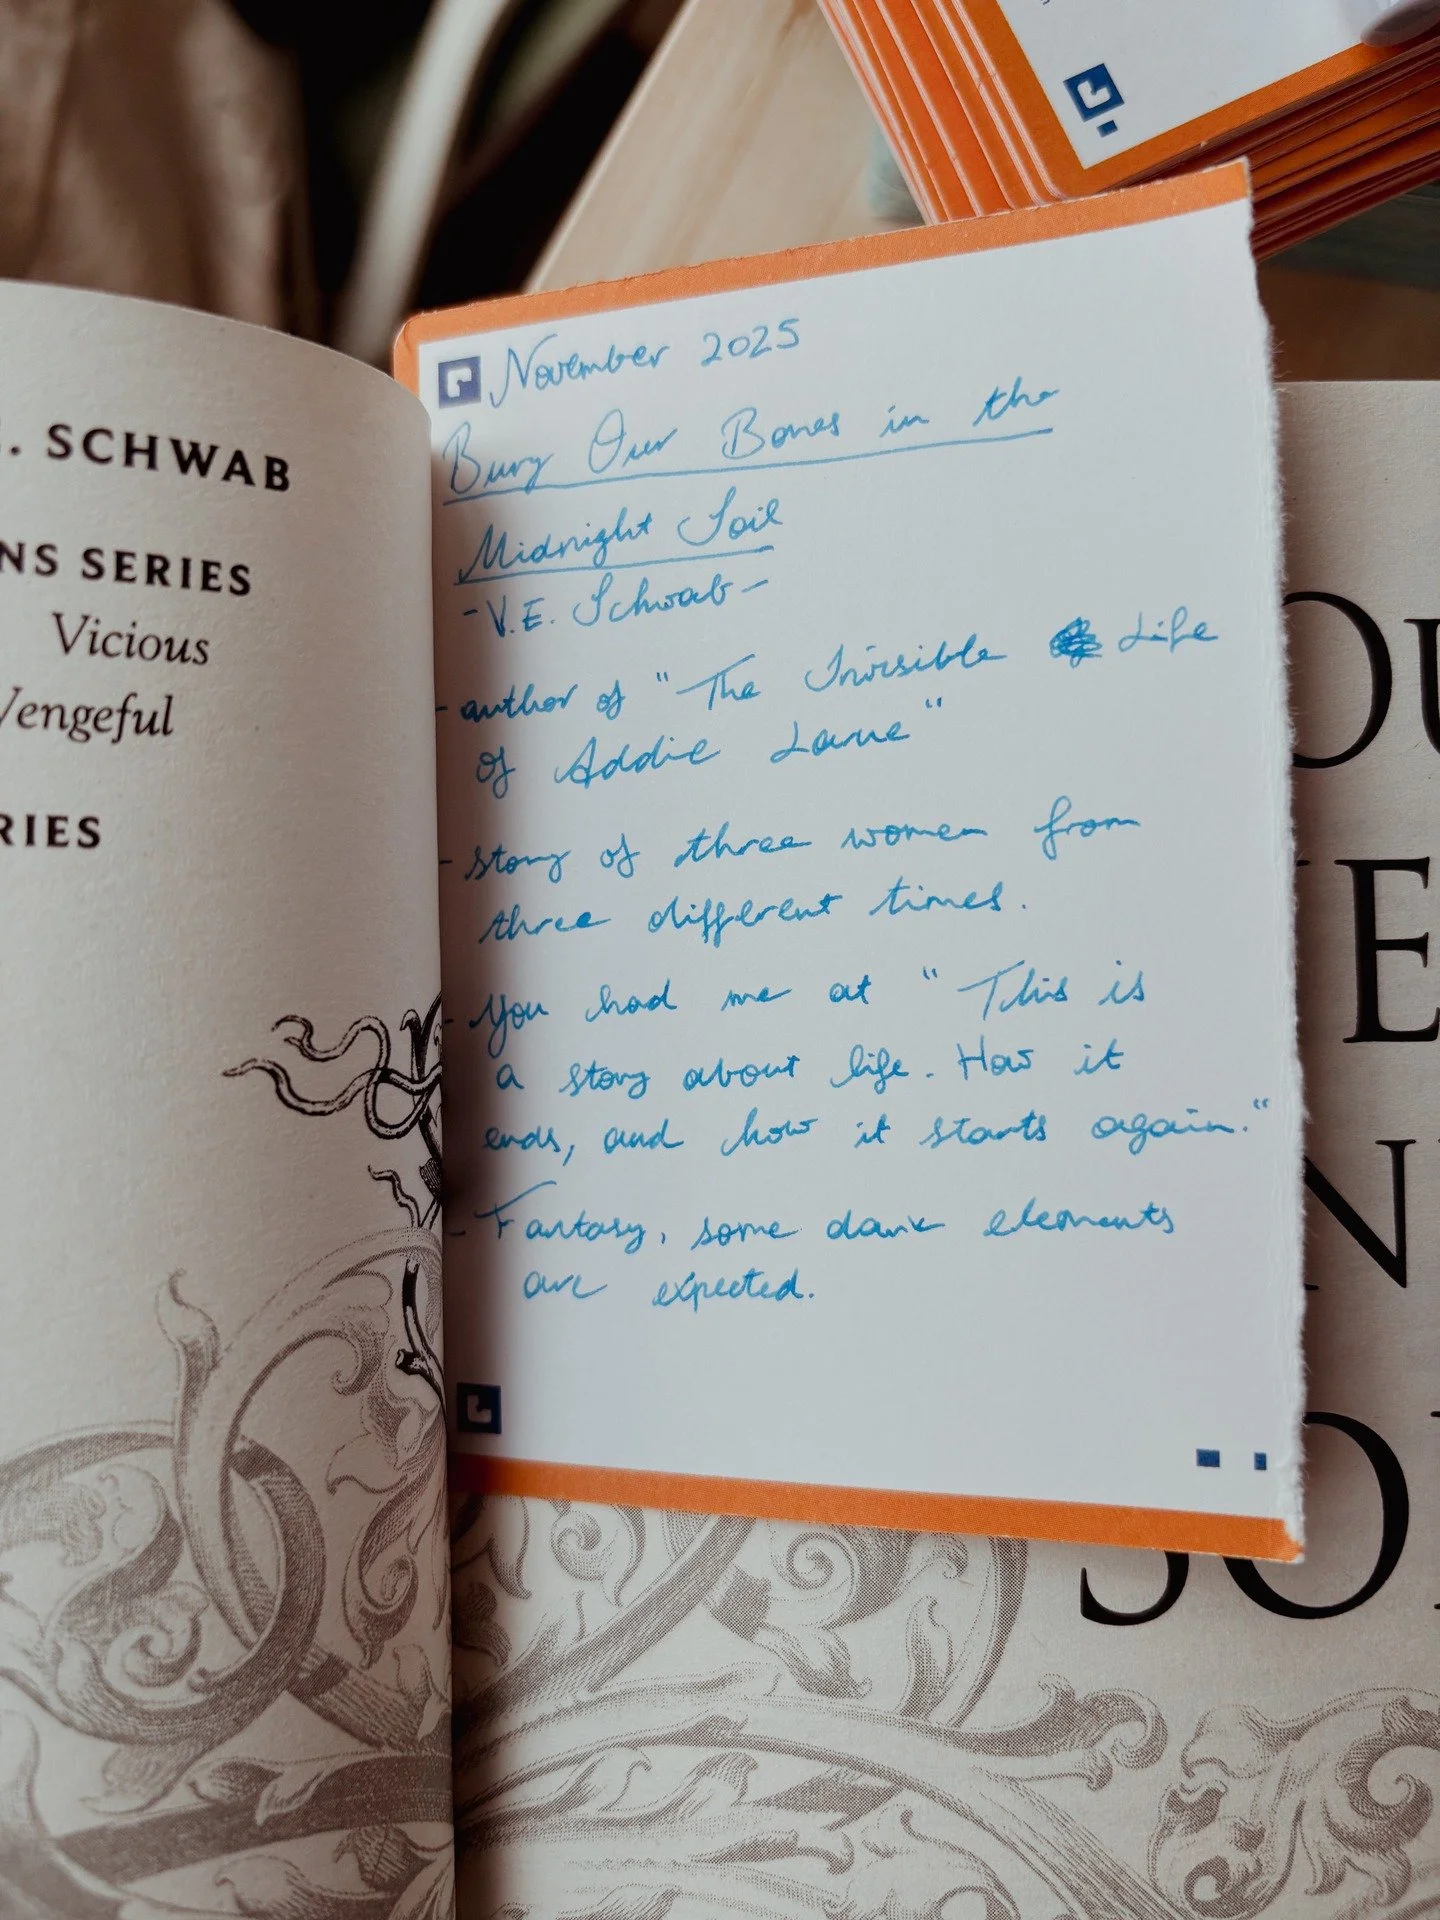 . SCHWAB
NS SERIES
Vicious
Vengeful
RIES
November 2025
Bury Our Bones in the
Midnight Soil
- V.E. Schwab -
- author of "The Invisible Life
of Addie Larue"
- story of three women from
three different times.
- You had me at "This is
a story about life. How it
ends, and how it starts again."
- Fantasy, some dark elements
are expected.
OU
E
N
SO